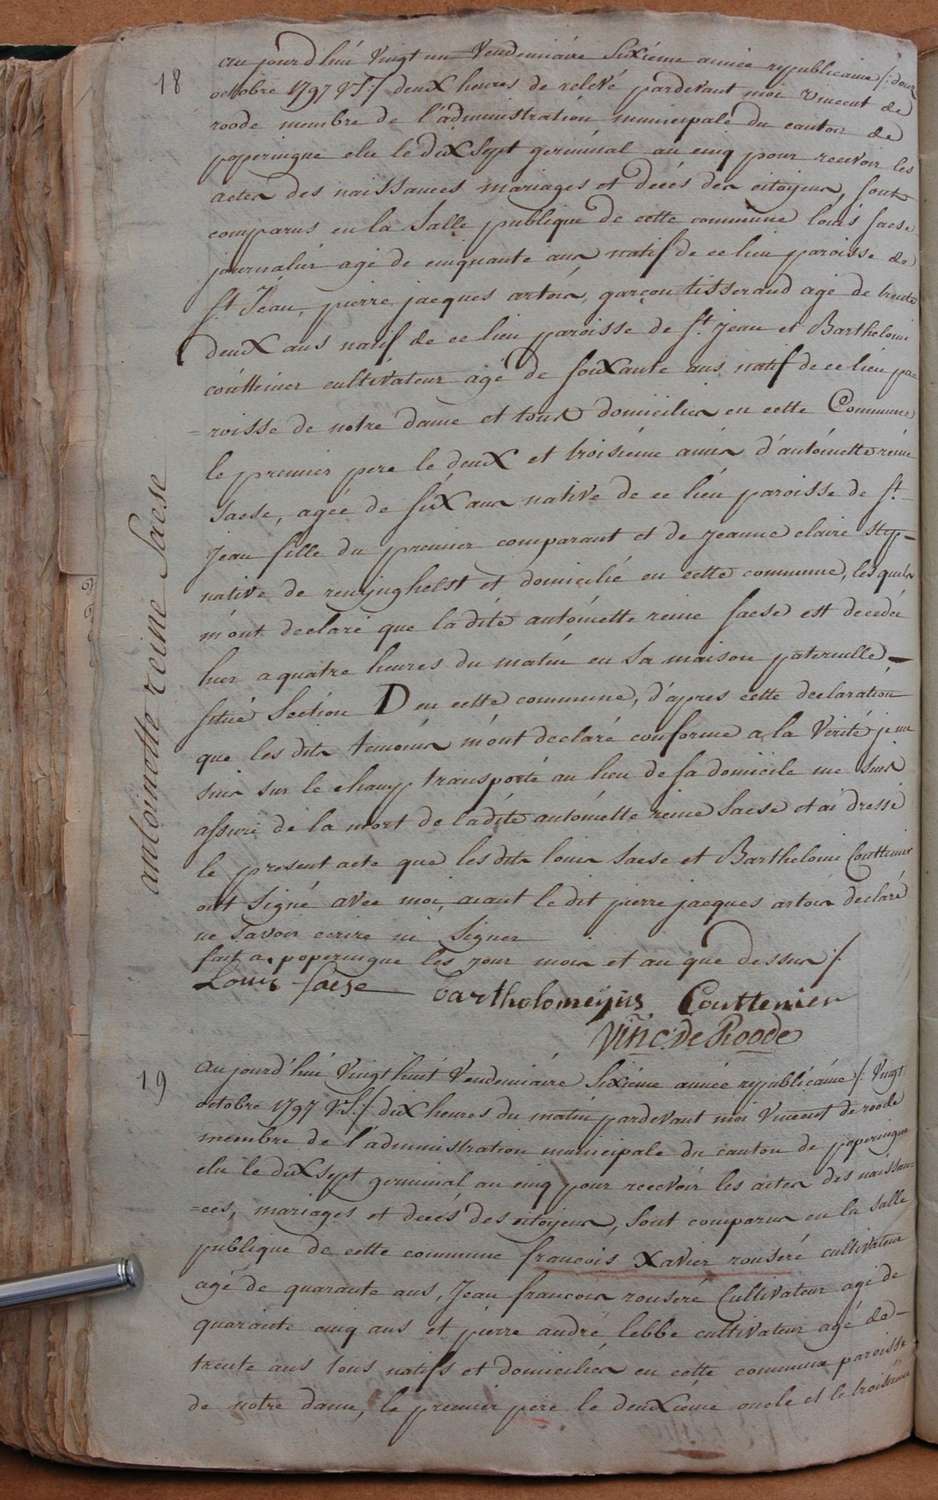 18
aujourd'hui Vingt un Vendemiaire Sixiéme année republicaine /: douze
octobre 1797 VS:/ deux heures de relevé pardevant moi Vincent de
roode membre de l'administration municipale du canton de
poperingue elu le dix Sept germinal an cinq pour recevoir les
actes des naissances mariages et décés des citoyens, sont
comparus en la Salle publique de cette commune louis saese
journalier agé de cinquante ans natif de ce lieu paroisse de
St Jean, pierre jacques artois, garçon tisserand agé de trente
deux ans natif de ce lieu paroisse de St jean et Barthelomi
couttenier cultivateur agé de soixante ans natif de ce lieu pa
=roisse de notre dame et tous domiciliés en cette Commune
le premier pere le deux et troisiéme amis d'antoinette reine
Saese, agée de six ans native de ce lieu paroisse de St
Jean fille du premier comparant et de Jeanne claire Step-
native de reninghelst et domicilié en cette commune, les quels
m'ont declaré que la dite antoinette reine saese est decedée
hier a quatre heures du matin en Sa maison paternelle
situé Section D en cette commune, d'apres cette declaration
que les dits temoins m'ont declaré conforme a la Verité je me
suis sur le champ transporté au lieu de sa domicile me suis
assuré de la mort de ladite antoinette reine Saese et ai dressé
le present acte que les dits louis Saese et Barthelomi Couttenier
ont Signé avec moi, aiant le dit pierre jacques artois declaré
ne Savoir ecrire ni Signer
fait a poperingue les jour mois et an que dessus /.
Louis saese Bartholomeyus Couttenier
Vinc. De Roode
antoinette reine Saese
19
aujourd'hui Vingt huit Vendemiaire Sixiéme année republicaine /: Vingt
octobre 1797 VS:/ dix heures du matin pardevant moi Vincent de roode
membre de l'administration municipale du canton de poperingue
elu le dix Sept germinal an cinq pour recevoir les actes des naissan=
=ces, mariages et décés des citoyens, Sont comparus en la Salle
publique de cette commune francois Xavier rouseré cultivateur
agé de quarante ans, Jean francois rousere Cultivateur agé de
quarante cinq ans et pierre andré lebbe cultivateur agé de
trente ans tous natifs et domiciliés en cette commune paroisse
de notre dame, le premier pere le deuxieme oncle et le troisiéme